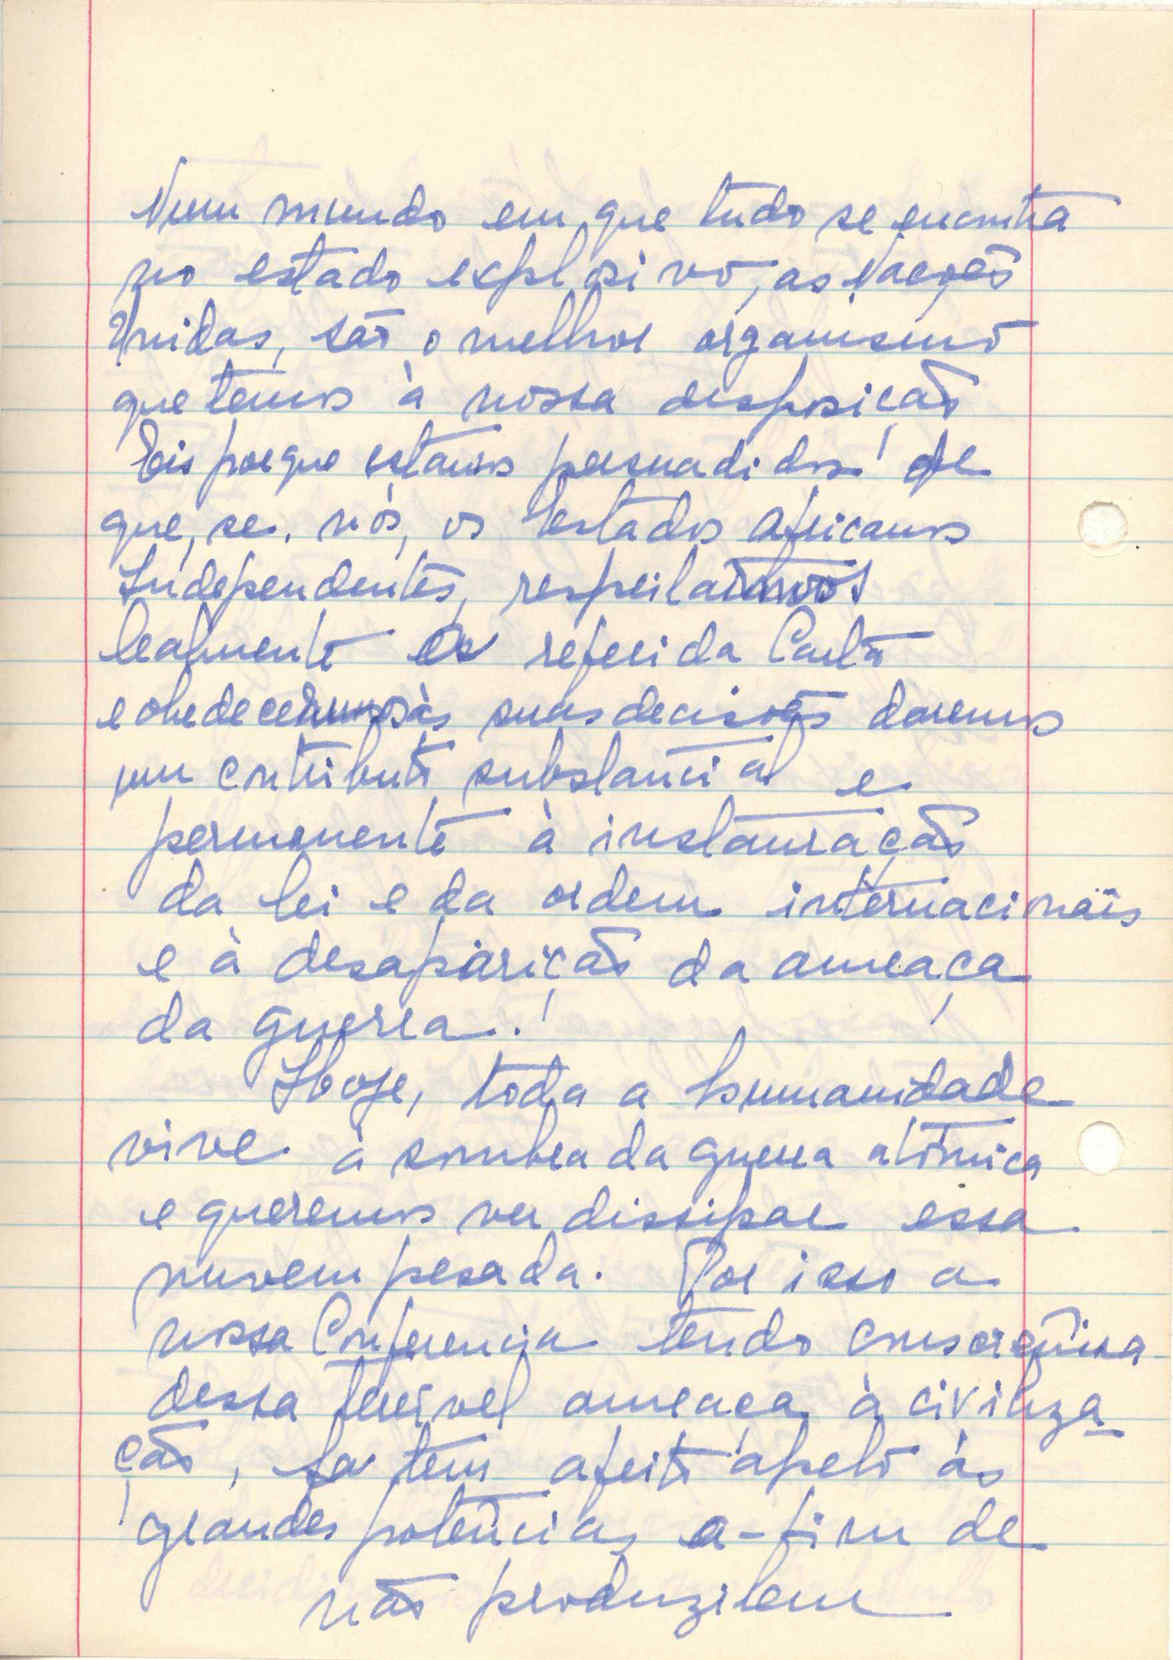 Num mundo em que tudo se encontra
no estado explosivo, as Nações
Unidas, são o melhor organismo
que temos à nossa disposição
Eis porque estamos persuadidos de
que, se, nós, os Estados africanos
Independentes, respeitarmos
lealmente a referida Carta
e obedecermos às suas decisões daremos
um contributo substancial e
permanente à instauração
da lei e da ordem internacionais
e à desaparição da ameaça
da guerra.
Hoje, toda a humanidade
vive à sombra da guerra atómica
e queremos ver dissipar essa
nuvem pesada. Por isso a
nossa Conferencia tendo
dessa terrivel ameaça à civiliza
ção, tem feito apelo às
grandes potências a-fim de
não produzirem